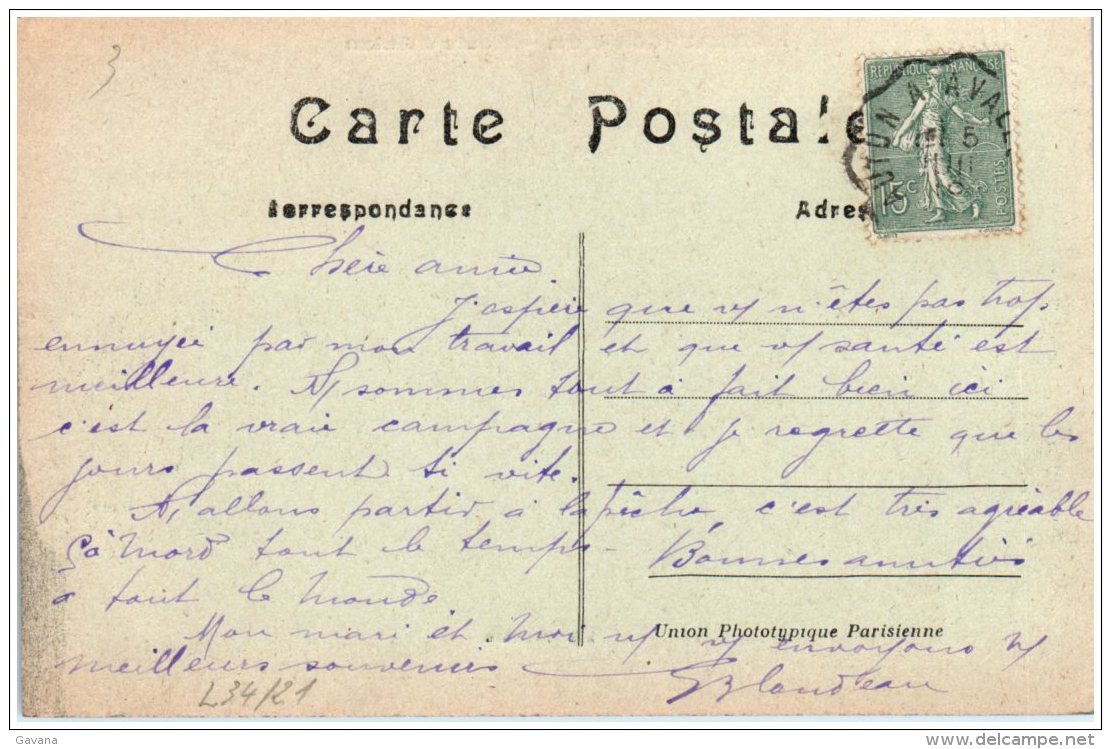 3
Carte Postale
Correspondance
Adres
RÉPUBLIQUE FRANÇAISE
15c POSTES
AUTUN A AVALL
5
Chère amie
J'espère que vs n'êtes pas trop
ennuyée par mon travail et que vs santé est
meilleure. Ns sommes tout à fait bien ici
c'est la vraie campagne et je regrette que les
jours passent si vite.
Ns allons partir à la pêche, c'est très agréable
çà mord tout le temps. Bonnes amitiés
à tout le monde
Mon mari et moi vs envoyons ns
meilleurs souvenirs
GBlondeau
Union Phototypique Parisienne
L34/21
Gavana
www.delcampe.net